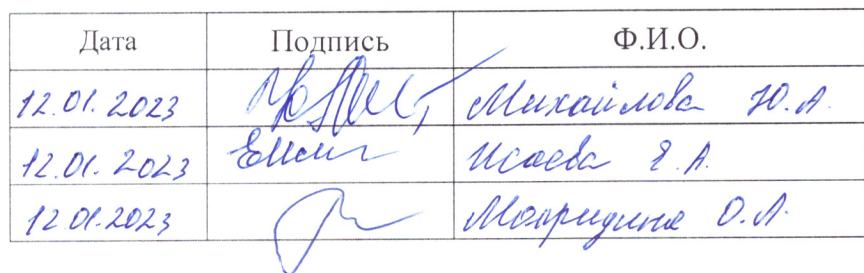 Дата Подпись Ф.И.О.
12.01.2023 Михайлова Ю.А.
12.01.2023 Исаева Е.А.
12.01.2023 О.А.